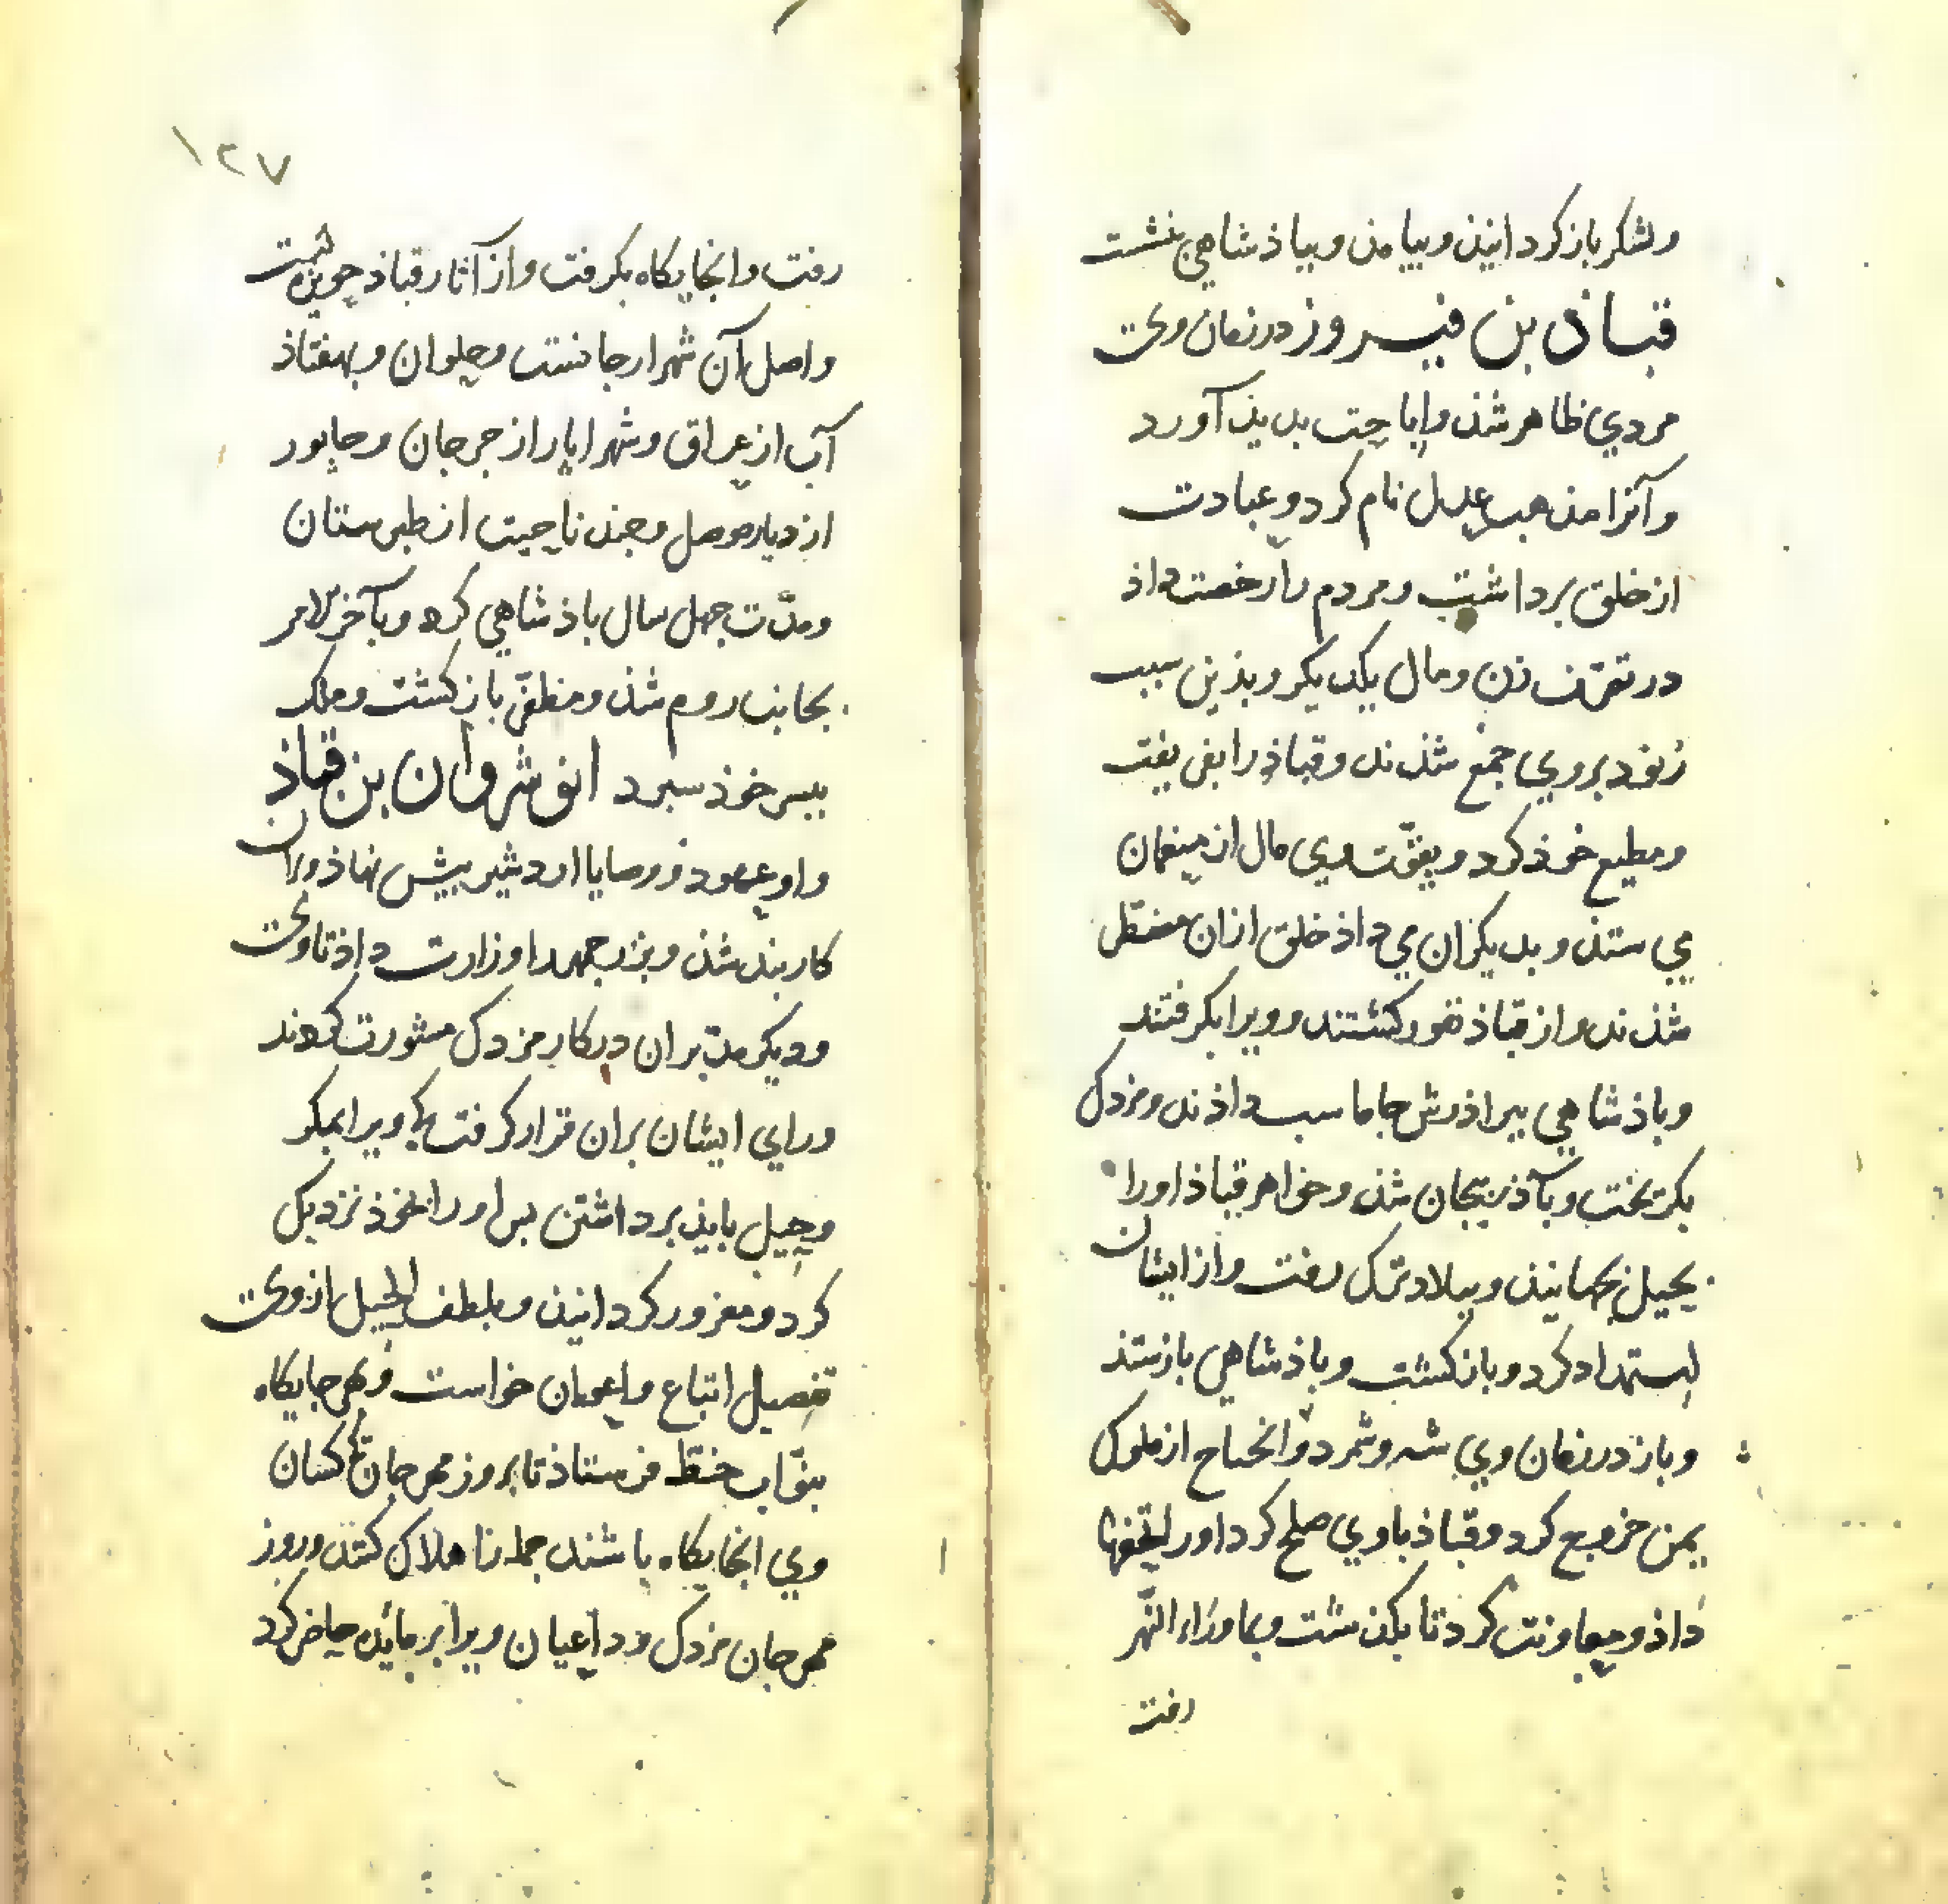 ولشکر باز کردانیذ وبیامذ وبپاذشاهی بنشست
قباذ بن فیروز در زمان وی
مردی ظاهر شذ واباحت بدیذ آورد
وآنرا مذهب عدل نام کرد وعبادت
از خلق برداشت ومردم را رخصت داذ
در تصرّف زن ومال یکدیکر وبذین سبب
رنود بروی جمع شذند وقباذ را بفریفت
ومطیع خوذ کرد وبقوّت وی مال از منعمان
می ستذ وبدیکران می داذ خلق ازان مضطر
شذند واز قباذ نفور کشتند وویرا بکرفتند
وباذشاهی ببراذرش جاماسب داذند ومزدک
بکریخت وبآذربیجان شذ وخواهر قباذ اورا
بحیل بجهانیذ وببلاد ترک رفت واز ایشان
استمداد کرد وباز کشت وباذشاهی بازستذ
وباز در زمان وی شمر ذو الجناح از ملوک
یمن خروج کرد وقباذ باوی صلح کرد اورا تحفها
داذ ومعاونت کرد تا بکذشت وبماوراء النّهر
رفت
۱۲۷
رفت وانجایکاه بکرفت واز آثار قباذ جویزه شهرست
واصل آن شهر ارجانست وحلوان وبهقباذ
آب از عراق وشهراباد از جرجان وخابور
از دیار موصل وچند ناحیت از طبرستان
ومدّت چهل سال باذشاهی کرد وبآخر الامر
بجانب روم شذ ومظفّر باز کشت وملک
ببسر خوذ سبرد انوشروان بن قباذ
واو عهود ووصایا اردشیر پیش نهاذ وبران
کاربند شذ وبزرجمهر را وزارت داذ تا وی
ودیکر مدبّران در کار مزدک مشورت کردند
ورای ایشان بران قرار کرفت که ویرا بمکر
وحیل بایذ برداشتن بس اورا بخوذ نزدیک
کرد ومغرور کردانیذ وبلطف الحیل از وی
تفصیل اتباع واعوان خواست وبهر جایکاه
بنوّاب خط فرستاذ تا بروز مهرجان که کسان
وی انجایکاه باشند جمله را هلاک کنند وروز
مهرجان مزدک ودر اعیان ویرا بر مائده حاضر کرد